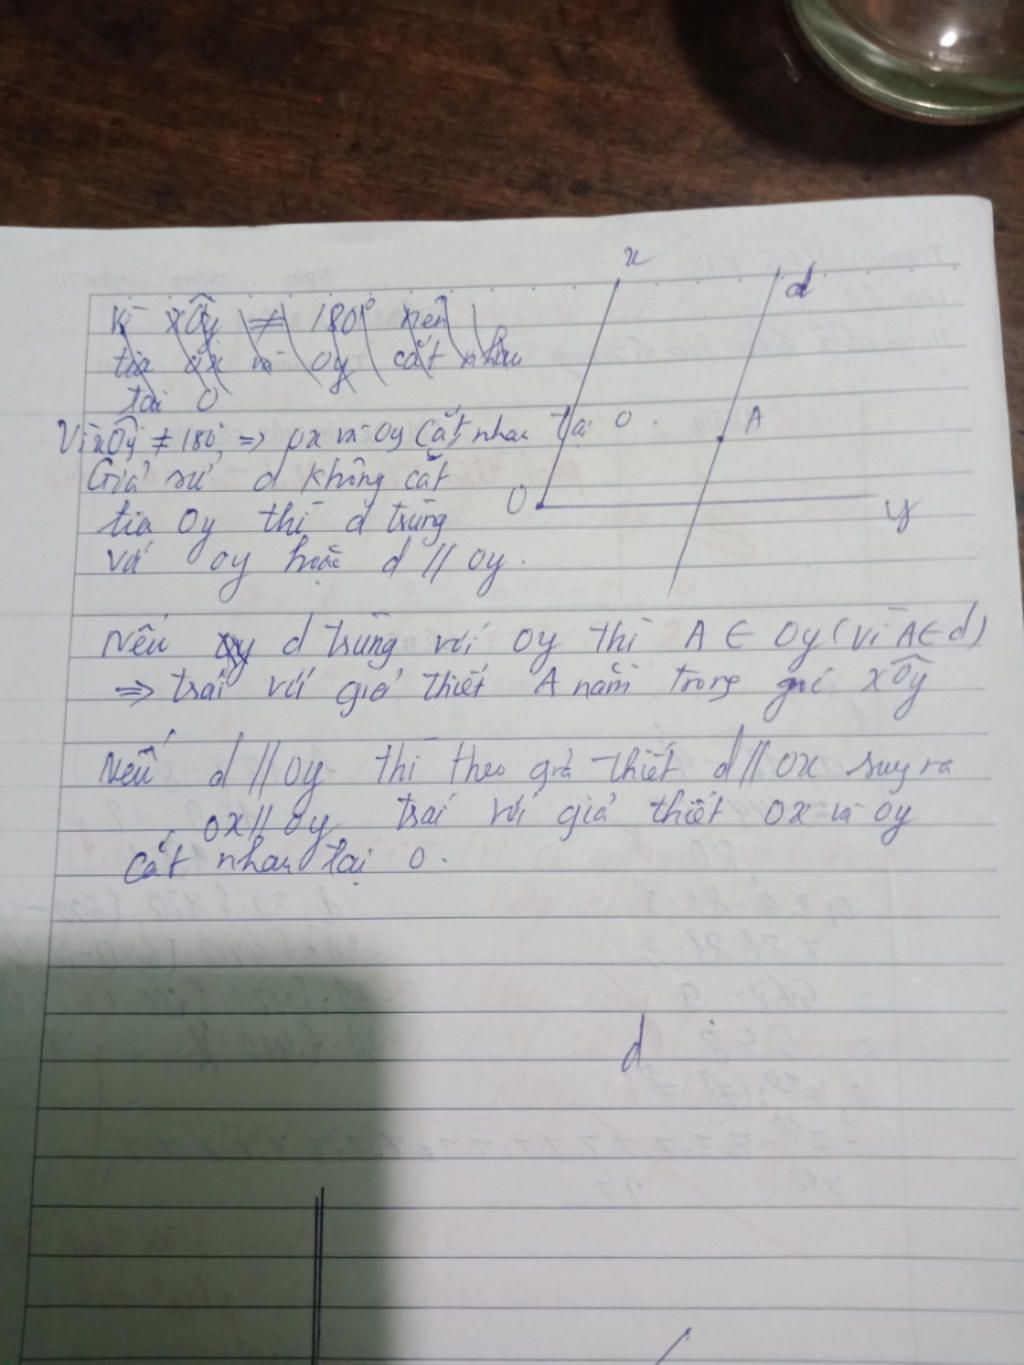 x
d
Vì xÔy ≠ 180° nên
tia Ox và Oy cắt nhau
tại O
Vì xÔy ≠ 180°, => Ox và Oy cắt nhau tại O.
A
Giả sử d không cắt
O
y
tia Oy thì d trùng
với Oy hoặc d // Oy.
Nếu d trùng với Oy thì A ∈ Oy (vì A ∈ d)
=> trái với giả thiết A nằm trong góc xÔy
Nếu d // Oy thì theo giả thiết d // Ox suy ra
Ox // Oy trái với giả thiết Ox và Oy
cắt nhau tại O.
d